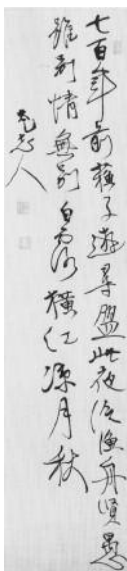 七百年前蘇子遊尋盟此夜泛漁舟賢愚
雖別情無別白露橫江涼月秋
人